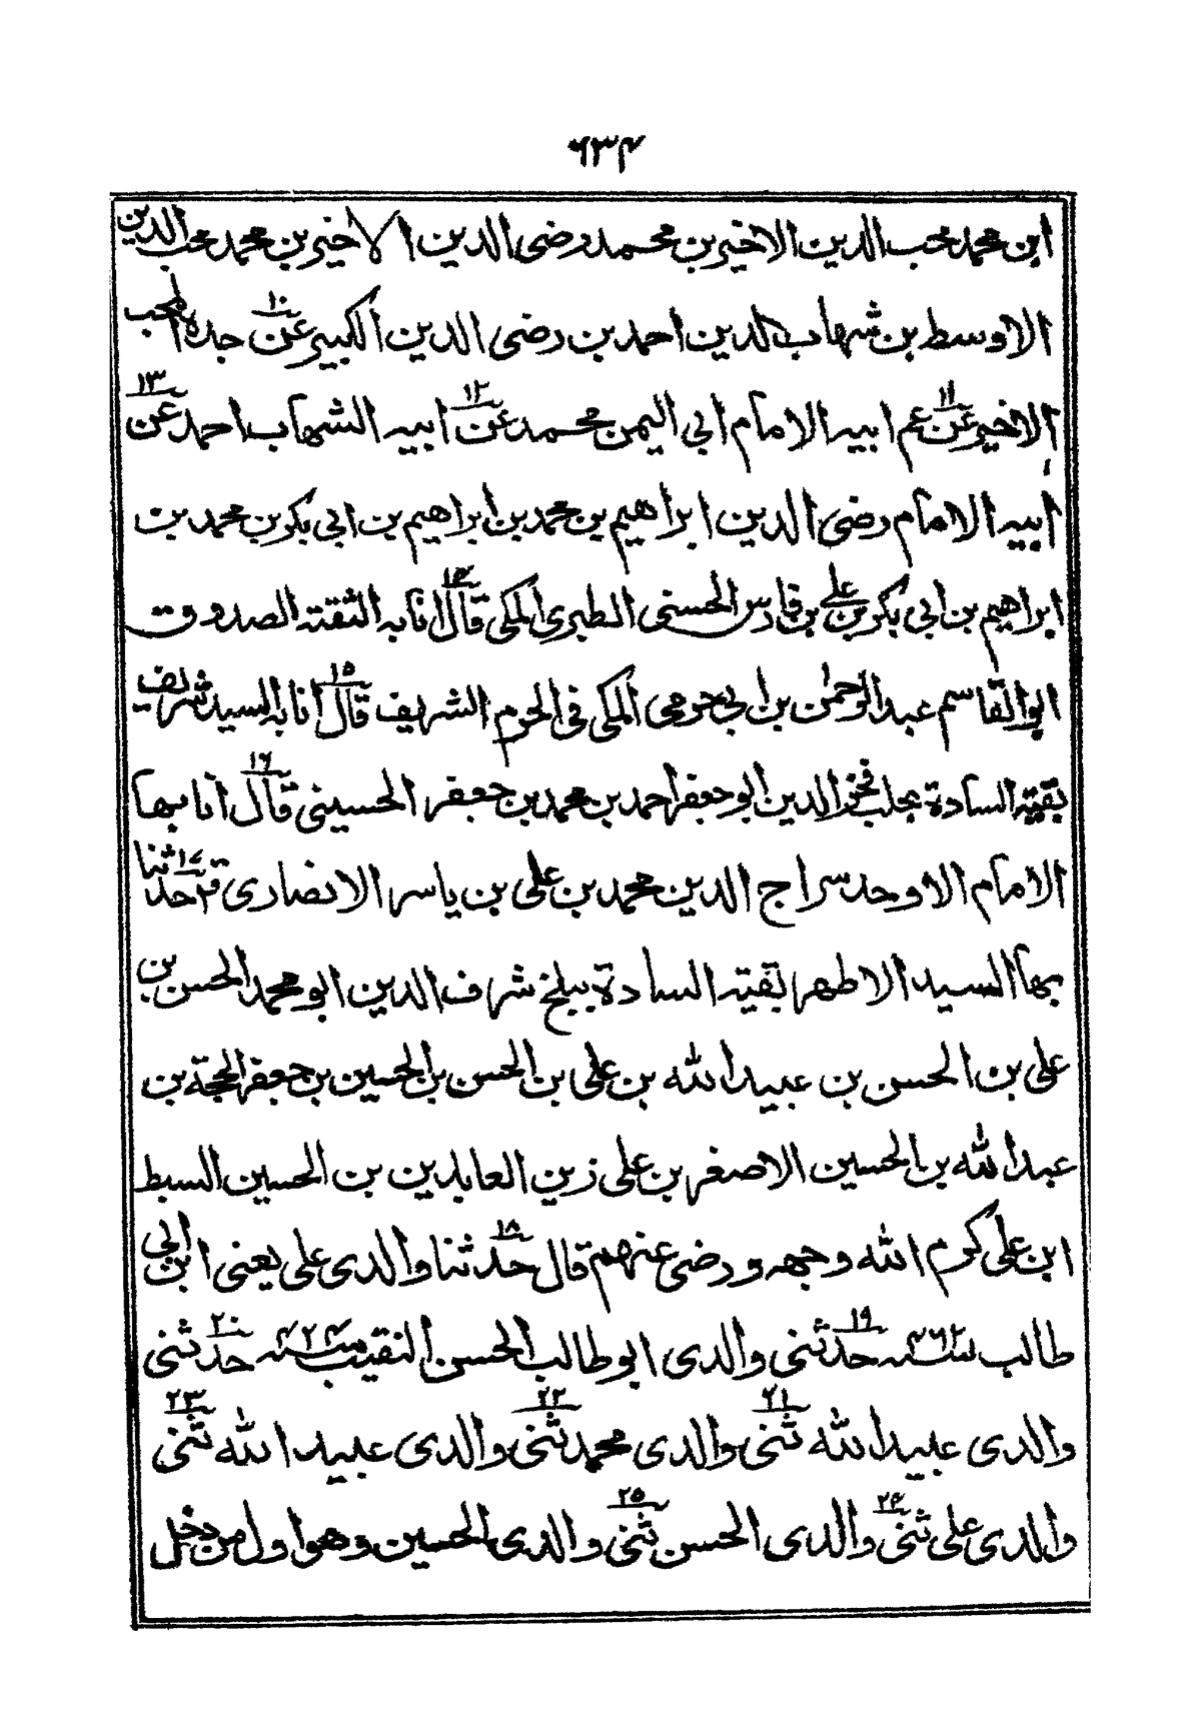 ٦٣٤
ابن محمد محب الدين الاخير بن محمد رضى الدين الاخير بن محمد محب الدين
الاوسط بن شهاب الدين احمد بن رضى الدين الكبير عن ١٠ جده المحب
الاخير عن ١١ عم ابيه الامام ابي اليمن محمد عن ١٢ ابيه الشهاب احمد عن ١٣
ابيه الامام رضى الدين ابراهيم بن محمد بن ابراهيم بن ابي بكر بن محمد بن
ابراهيم بن ابي بكر بن علي بن فارس الحسنى الطبرى المكى قال ١٤ انا به الثقة الصدوق
ابو القاسم عبد الرحمٰن بن ابي حرمى المكى فى الحرم الشريف قال ١٥ انا به السيد شريف
بقية السادة بحلب فخر الدين ابو جعفر احمد بن محمد بن جعفر الحسينى قال ١٦ انا بها
الامام الاوحد سراج الدين محمد بن على بن ياسر الانصارى قال ١٧ حدثنا
بها السيد الاطهر بقية السادة ببلخ شرف الدين ابو محمد الحسن بن
على بن الحسن بن عبيد الله بن على بن الحسن بن الحسين بن جعفر الحجة بن
عبد الله بن الحسين الاصغر بن على زين العابدين بن الحسين السبط
ابن على كرم الله وجهه ورضى عنهم قال حدثنا ١٨ والدى على يعنى ابن ابي
طالب سنه ٤٦٢ حدثنى ١٩ والدى ابو طالب الحسن النقيب سنه ٤٢٤ حدثنى ٢٠
والدى عبيد الله ثنى ٢١ والدى محمد ثنى ٢٢ والدى عبيد الله ثنى ٢٣
والدى على ثنى ٢٤ والدى الحسن ثنى ٢٥ والدى الحسين وهو اول من دخل